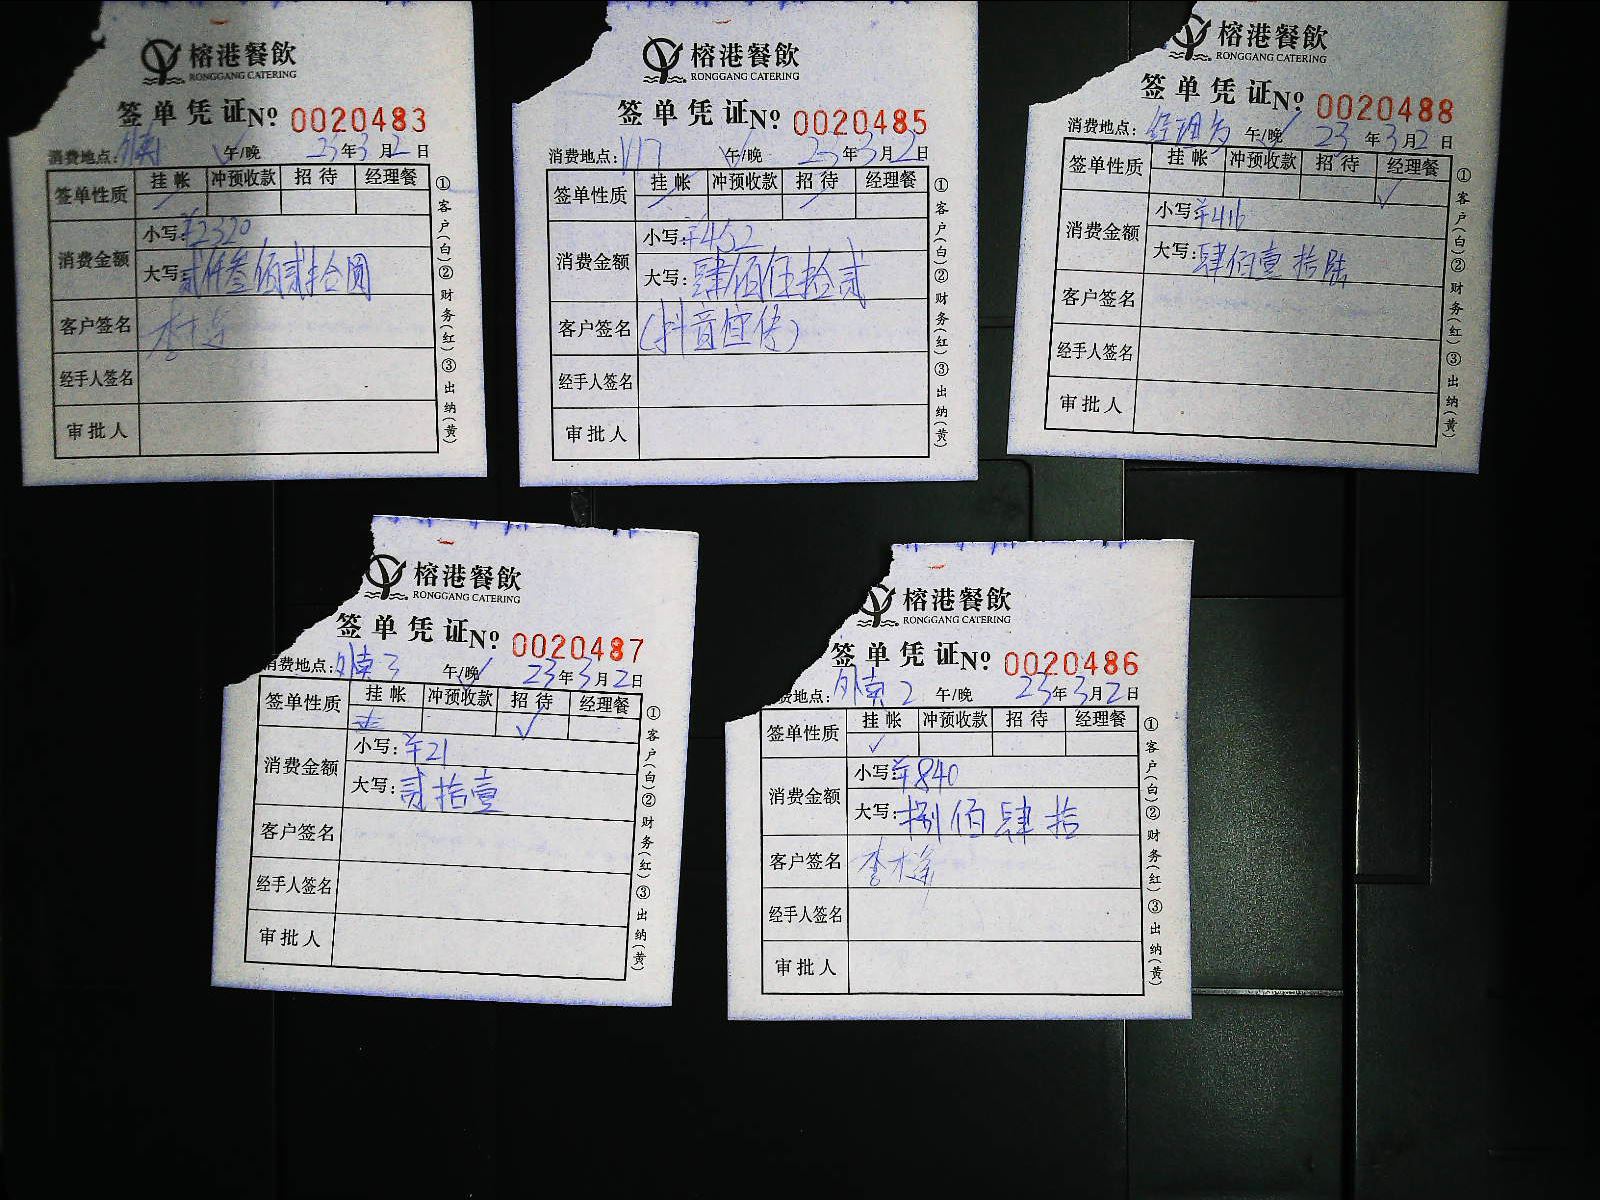 榕港餐飲
RONGGANG CATERING
签单凭证№ 0020483
消费地点: 外卖1 午/晚 23年3月2日
签单性质 挂帐 冲预收款 招待 经理餐
消费金额 小写:¥2320
大写:贰仟叁佰贰拾圆
客户签名
经手人签名
审批人
①客户(白)②财务(红)③出纳(黄)
榕港餐飲
RONGGANG CATERING
签单凭证№ 0020485
消费地点: V17 午/晚 23年3月2日
签单性质 挂帐 冲预收款 招待 经理餐
消费金额 小写:¥452
大写:肆佰伍拾贰
客户签名 (抖音宣传)
经手人签名
审批人
①客户(白)②财务(红)③出纳(黄)
榕港餐飲
RONGGANG CATERING
签单凭证№ 0020488
消费地点: 经理 午/晚 23年3月2日
签单性质 挂帐 冲预收款 招待 经理餐
消费金额 小写:¥416
大写:肆佰壹拾陆
客户签名
经手人签名
审批人
①客户(白)②财务(红)③出纳(黄)
榕港餐飲
RONGGANG CATERING
签单凭证№ 0020487
消费地点: 外卖3 午/晚 23年3月2日
签单性质 挂帐 冲预收款 招待 经理餐
消费金额 小写:¥21
大写:贰拾壹
客户签名
经手人签名
审批人
①客户(白)②财务(红)③出纳(黄)
榕港餐飲
RONGGANG CATERING
签单凭证№ 0020486
费地点: 外卖2 午/晚 23年3月2日
签单性质 挂帐 冲预收款 招待 经理餐
消费金额 小写:¥840
大写:捌佰肆拾
客户签名
经手人签名
审批人
①客户(白)②财务(红)③出纳(黄)